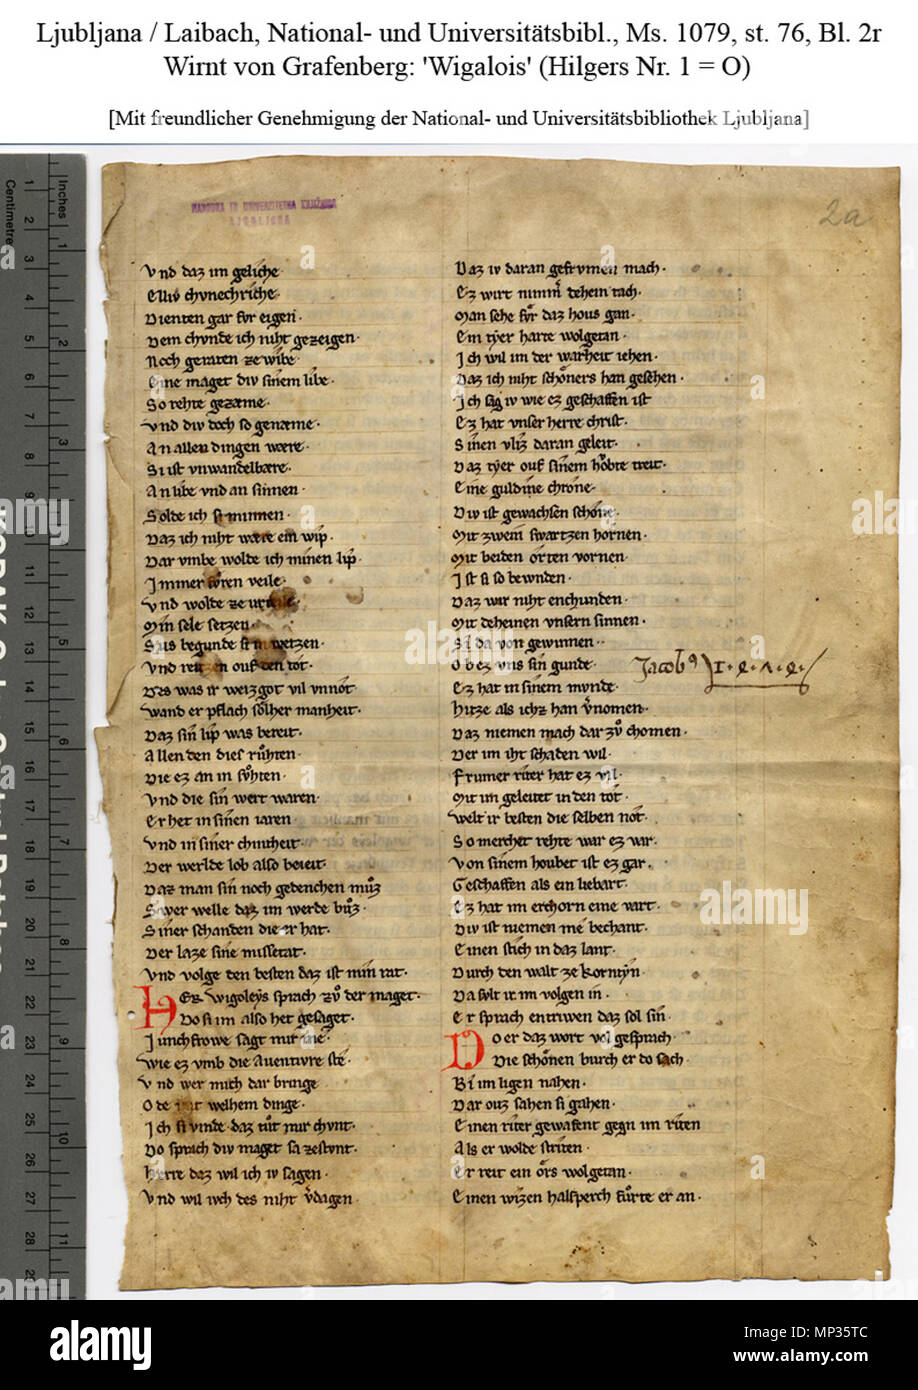 Ljubljana / Laibach, National- und Universitätsbibl., Ms. 1079, st. 76, Bl. 2r
Wirnt von Grafenberg: 'Wigalois' (Hilgers Nr. 1 = O)
[Mit freundlicher Genehmigung der National- und Universitätsbibliothek Ljubljana]
NARODNA IN UNIVERZITETNA KNJIŽNICA
LJUBLJANA
2a
Vnd daz im geliche
Elliv chvnechriche·
Dienten gar fvr eigen·
Dem chvnde ich niht gezeigen·
Noch geraten ze wibe·
Eine maget div sinem libe·
So rehte gezæme·
vnd div doch so genæme·
An allen dingen wære·
Si ist vnwandelbære·
An libe vnd an sinnen·
Solde ich si minnen·
Daz ich niht wære ein wip·
Dar vmbe wolde ich minen lip·
Immer veile·
Vnd wolde ze
Min sele setzen·
Sus begunde si wetzen·
vnd ouf den tot·
Des was ir weizgot vil vnnot
wand er pflach solher manheit·
Daz sin lip was bereit·
Allen den dies růhten·
Die ez an in sůhten·
vnd die sin wert waren·
Er het in sinen iaren·
vnd in siner chintheit·
Der werlde lob also bereit·
Daz man sin noch gedenchen můz
Swer welle daz im werde bůz·
Siner schanden die er hat·
Der laze sine missetat·
vnd volge den besten daz ist min rat·
HEr wigoleys sprach zů der maget·
Do si im also het gesaget·
Iunchfrowe sagt mir me·
wie ez vmb die Auentivre ste
vnd wer mich dar bringe
Ode mit welhem dinge·
Ich si vinde daz tůt mir chvnt·
Do sprach div maget sa zestvnt·
Herre daz wil ich iv sagen·
vnd wil iwch des niht v̄dagen
Daz iv daran gefrvmen mach·
Ez wirt nimm̄ dehein tach·
Man sehe fvr daz hous gan·
Ein tyer harte wolgetan·
Ich wil im der warheit iehen·
Daz ich niht schoners han gesehen·
Ich sag iv wie ez geschaffen ist
Ez hat vnser herre christ·
Sinen vliz daran geleit·
Daz tyer ouf sinem hoͤbte treit·
Eine guldine chrone·
Div ist gewachsen schone·
Mit zwein swartzen hornen·
Mit beiden orten vornen·
Ist si so bewnden·
Daz wir niht enchunden·
Mit deheinen vnsern sinnen·
Si da von gewinnen·
Ob ez vns sin gunde·
Jacobꝯ
Ez hat in sinem mvnde·
hitze als ichz han v̄nomen·
Daz niemen mach dar zů chomen·
Der im iht schaden wil·
Frumer riter hat ez vil·
Mit im geleitet in den tot·
welt ir besten die selben not·
So merchet rehte war ez var·
Von sinem houbet ist ez gar·
Geschaffen als ein liebart·
Ez hat im erchorn eine vart·
Div ist niemen me bechant·
Einen stich in daz lant·
Durch den walt ze korntyn·
Da svlt ir im volgen in·
Er sprach entriwen daz sol sin·
Do er daz wort vol gesprach·
Die schonen burch er do sach·
Bi im ligen nahen·
Dar ouz sahen si gahen·
Einen riter gewafent gegn im riten
Als er wolde striten·
Er reit ein ors wolgetan·
Einen wizen halsperch fůrte er an·
Centimetre
Inches
alamy
Image ID: MP35TC
www.alamy.com